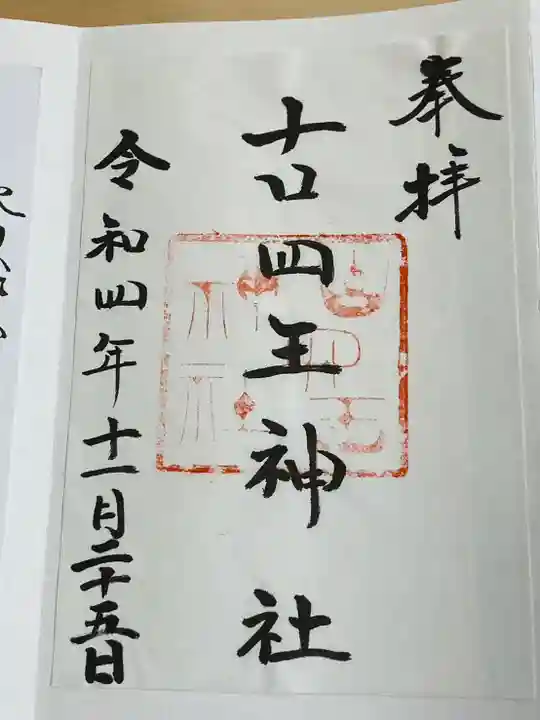 奉拝
古四王神社
令和四年十一月二十五日